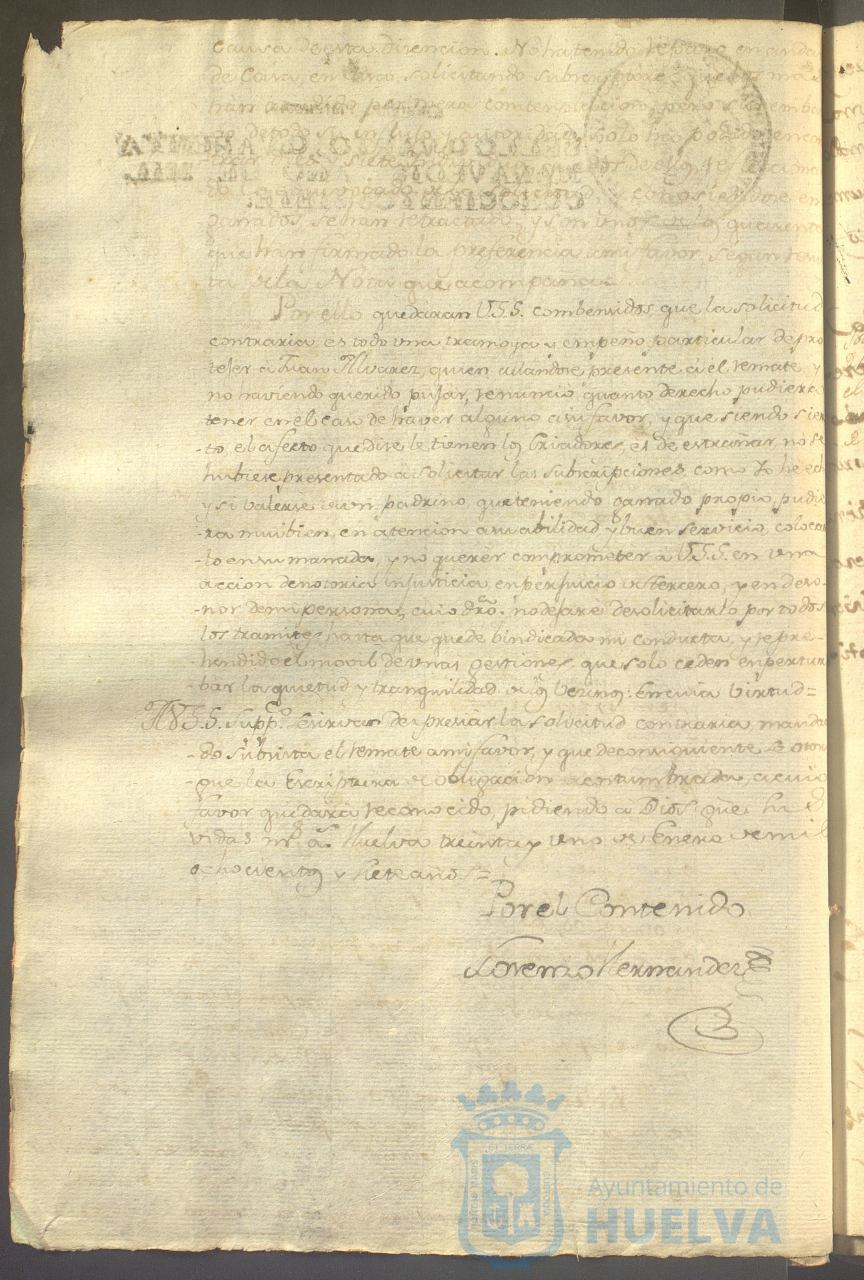 causa de esta direncion. No ha tenido reparo en andar
de Casa, en Casa, solicitando subscriptores, que los mas
han accedido por mera contemplacion, pero sin embar
go de todo su influxo y autoridad, solo ha podido encon
trar dies y siete
parrados, se han retractado, y son unos los quarenta
que han firmado la preferencia a mi favor, segun resul
ta de la Nota que acompaña.
Por ello quedaran V.S.S. combensidos, que la solicitud
contraria es todo una tramoya y empeño particular de pro
teJer à Juan Alvarez, quien allandose presente à el remate y
no haviendo querido pujar, renunciò quanto derecho pudiera
tener en el caso de haver alguno a su favor, y que siendo sier
-to, el afecto que dise le tienen los Criadores, es de estrañar, no se
hubiese presentado a solicitar las subscripciones como Yo he ech
y si valerse de un padrino, que teniendo ganado propio, pudie
-ra mui bien, en atencion a su abilidad y buen servicio, colocar
-lo en su manada, y no querer comprometer à V.S.S. en una
accion de notoria injusticia, en perjuicio de tercero, y en deso-
-nor de mi persona, cuio dro. no dejarè de solicitarlo por todos
los tramites hasta que quede bindicada mi conducta, y repre-
-hendido el movil de unas gestiones, que solo ceden en pertur
-bar la quietud y tranquilidad de los Vezinos: En cuia virtud=
A V.S.S. Suppco. se sirvan depresiar la solicitud contraria, mandan
-do subsista el remate a mi favor, y que de consiguiente se otor
-gue la Escriptura de obligacion acostumbrada, a cuio
favor quedarà reconocido, pidiendo à Dios gue. su
vidas ms. as. Huelva treinta y uno de Enero de mil
ochocientos y siete años=
Por el Contenido
Lorenzo Hernandez
SELLO QUARTO, QUARENTA
MARAVEDIS, AÑO DE MIL
OCHOCIENTOS Y SIETE.
Ayuntamiento de
HUELVA